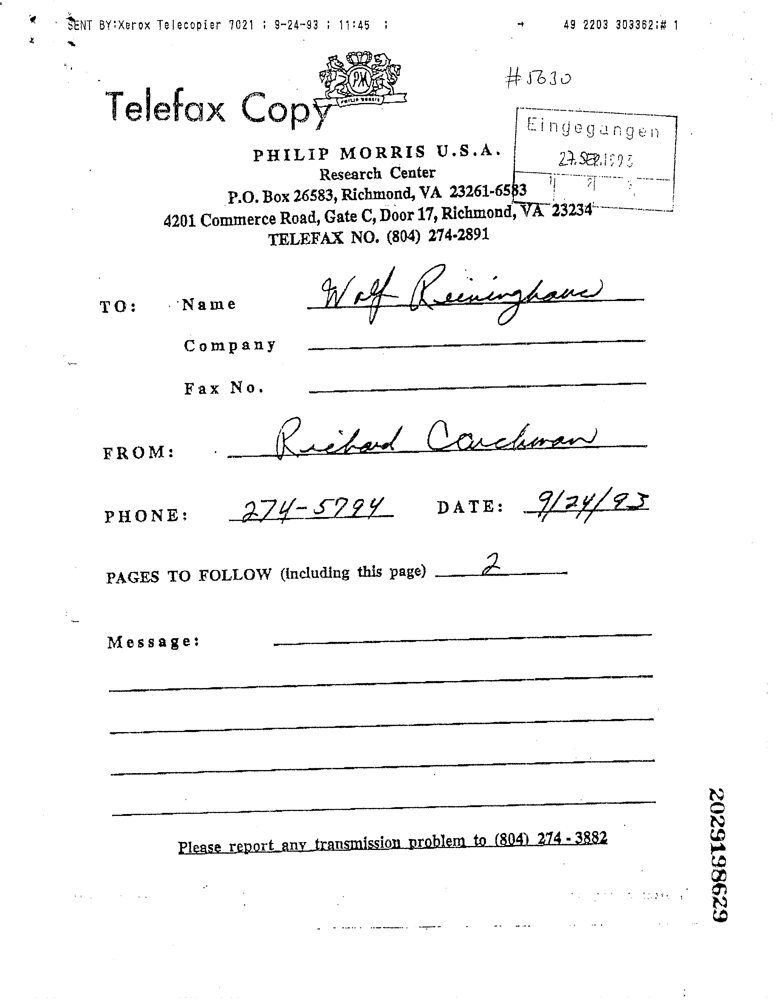 SENT BY:Xerox Telecopier 7021 ; 9-24-93 ; 11:45 ; → 49 2203 303362;# 1
#5630
PM
PHILIP MORRIS
Telefax Copy
Eingegangen
27. SEP. 1993
PHILIP MORRIS U.S.A.
Research Center
P.O. Box 26583, Richmond, VA 23261-6583
4201 Commerce Road, Gate C, Door 17, Richmond, VA 23234
TELEFAX NO. (804) 274-2891
TO: Name Wolf Reininghaus
Company
Fax No.
FROM: Richard Carchman
PHONE: 274-5794 DATE: 9/24/93
PAGES TO FOLLOW (including this page) 2
Message:
Please report any transmission problem to (804) 274-3882
2029198629